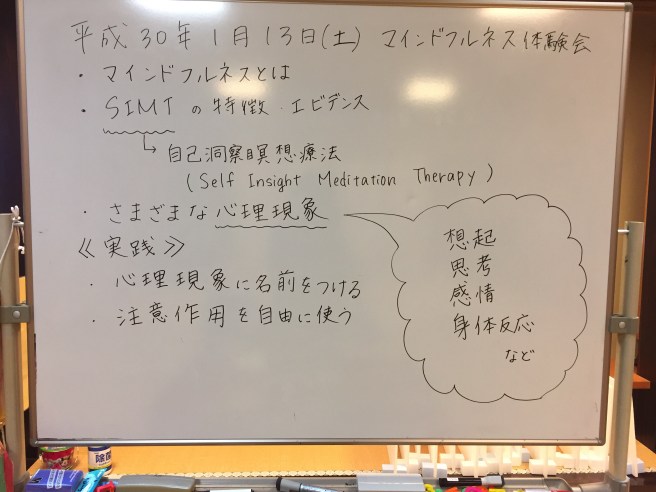 平成30年1月13日(土) マインドフルネス体験会
・マインドフルネスとは
・SIMTの特徴・エビデンス
自己洞察瞑想療法
(Self Insight Meditation Therapy)
・さまざまな心理現象
≪実践≫
・心理現象に名前をつける
・注意作用を自由に使う
想起
思考
感情
身体反応
など
除菌